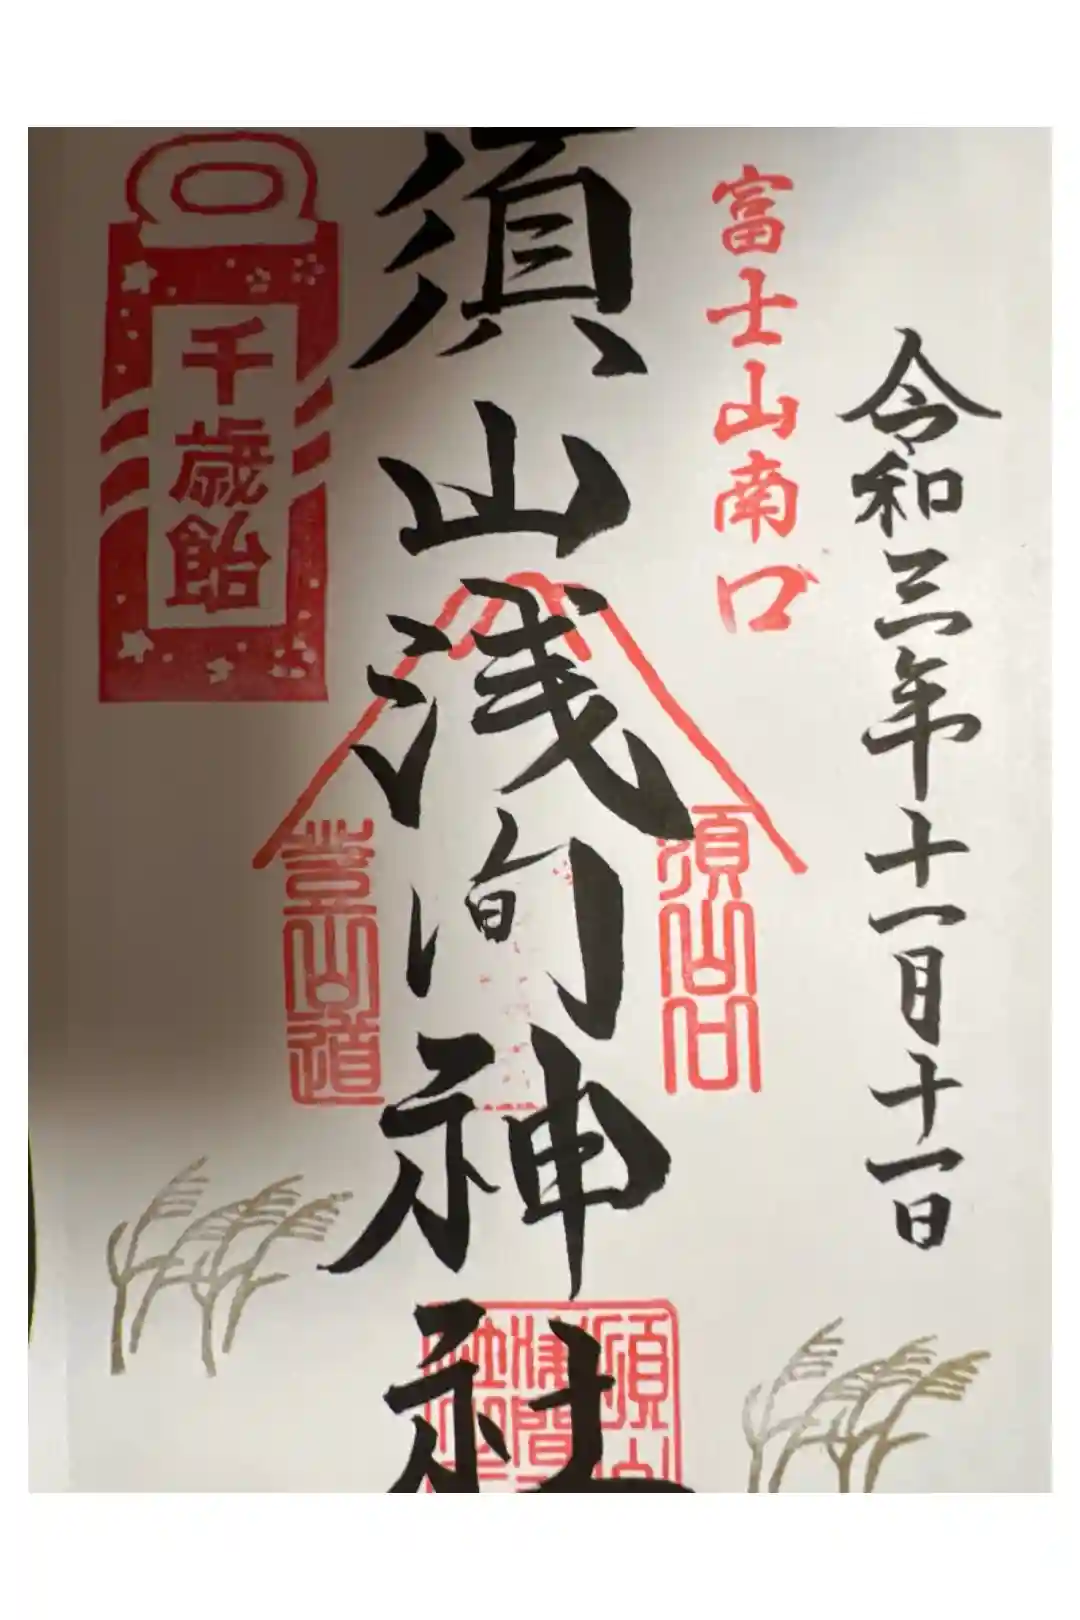 令和三年十一月十一日
富士山南口
須山浅间神社
須山口
登山道
千歳飴